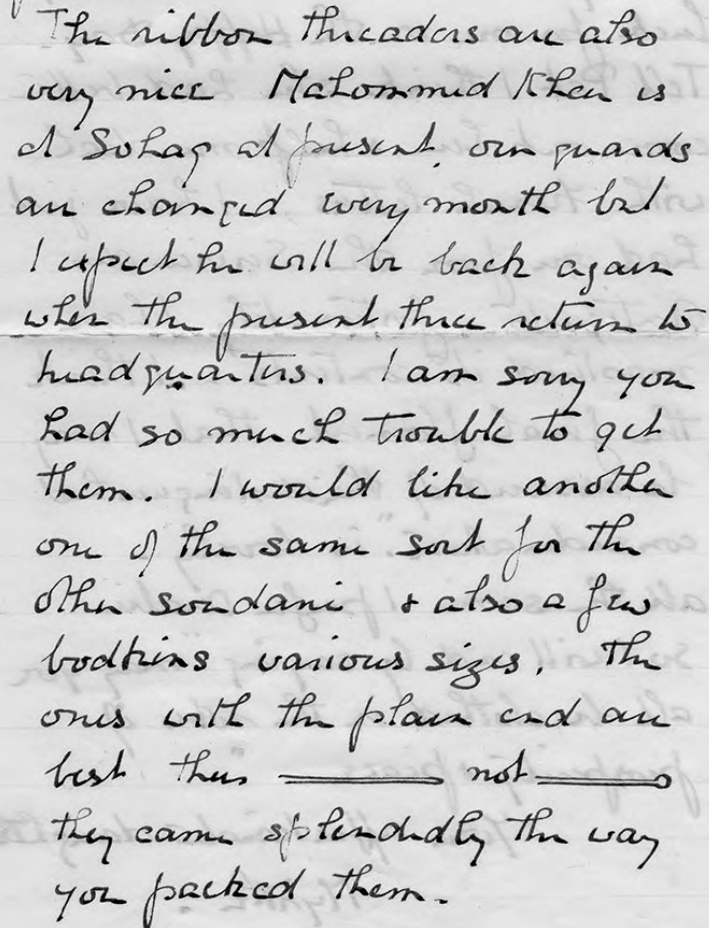 The ribbon threaders are also
very nice Mahommed Kher is
at Sohag at present, our guards
are changed every month but
I expect he will be back again
when the present three return to
headquarters. I am sorry you
had so much trouble to get
them. I would like another
one of the same sort for the
other soudani & also a few
bodkins various sizes. The
ones with the plain end are
best thus not
they came splendidly the way
you packed them.